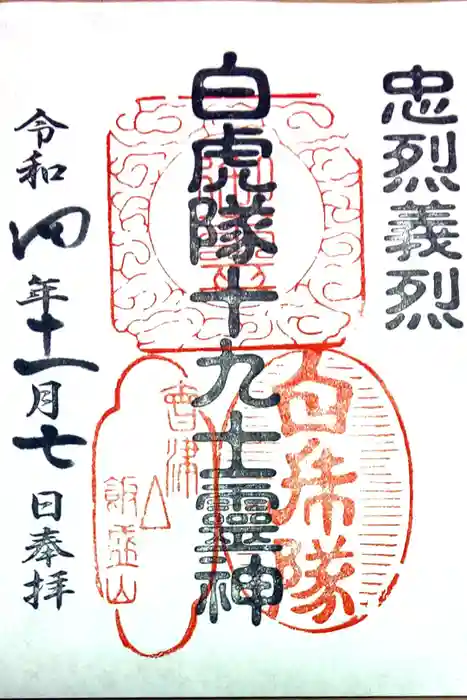 忠烈義烈
白虎隊十九士霊神
白虎隊
會津
飯盛山
令和四年十一月七日奉拝